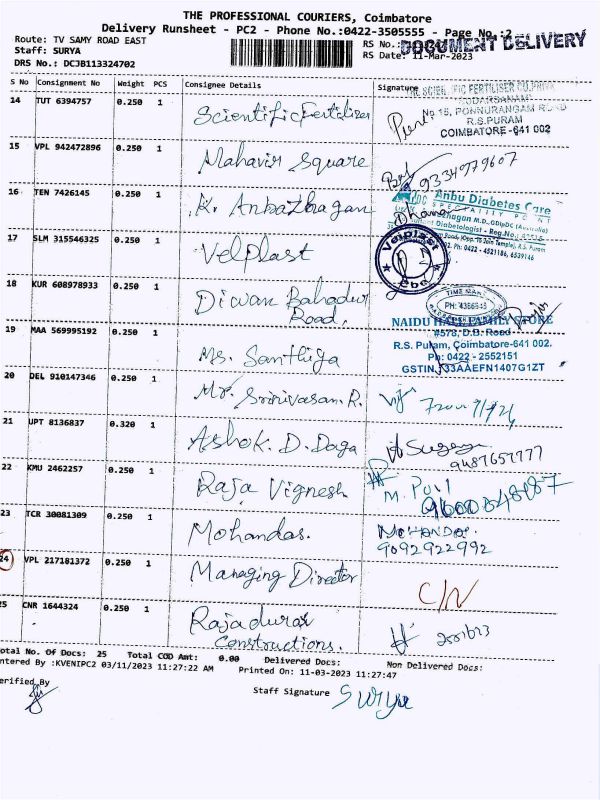 THE PROFESSIONAL COURIERS, Coimbatore
Delivery Runsheet - PC2 - Phone No.:0422-3505555 - Page No.:2
Route: TV SAMY ROAD EAST
RS No.:
DOCUMENT DELIVERY
Staff: SURYA
RS Date: 11-Mar-2023
DRS No.: DCJB113324702
S No Consignment No Weight PCS Consignee Details Signature
14 TUT 6394757 0.250 1 Scientific Fertilizer
No 15, PONNURANGAM ROAD
R.S.PURAM
COIMBATORE-641 002
15 VPL 942472896 0.250 1 Mahavir Square
9334079607
16 TEN 7426145 0.250 1 K. Anbazhagan
Anbu Diabetes Care
SPECIALITY POINT
17 SLM 315546325 0.250 1 Velplast
Velplast
Cbe
18 KUR 608978933 0.250 1 Diwan Bahadur Road.
PH: 4366848
NAIDU HALL FAMILY STORE
#578, D.B. Road
19 MAA 569995192 0.250 1 Ms. Santhiya
R.S. Puram, Coimbatore-641 002.
Ph: 0422 - 2552151
GSTIN 33AAEFN1407G1ZT
20 DEL 910147346 0.250 1 Mr. Srinivasan. R.
21 UPT 8136837 0.320 1 Ashok. D. Daga
9487657777
22 KMU 2462257 0.250 1 Raja Vignesh
23 TCR 30081309 0.250 1 Mohandas.
MOHANDAS.
9092922992
24 VPL 217181372 0.250 1 Managing Director
C/N
25 CNR 1644324 0.250 1 Rajadurai Constructions.
Total No. Of Docs: 25 Total COD Amt: 0.00 Delivered Docs: Non Delivered Docs:
Entered By :KVENIPC2 03/11/2023 11:27:22 AM Printed On: 11-03-2023 11:27:47
Verified By
Staff Signature Surya